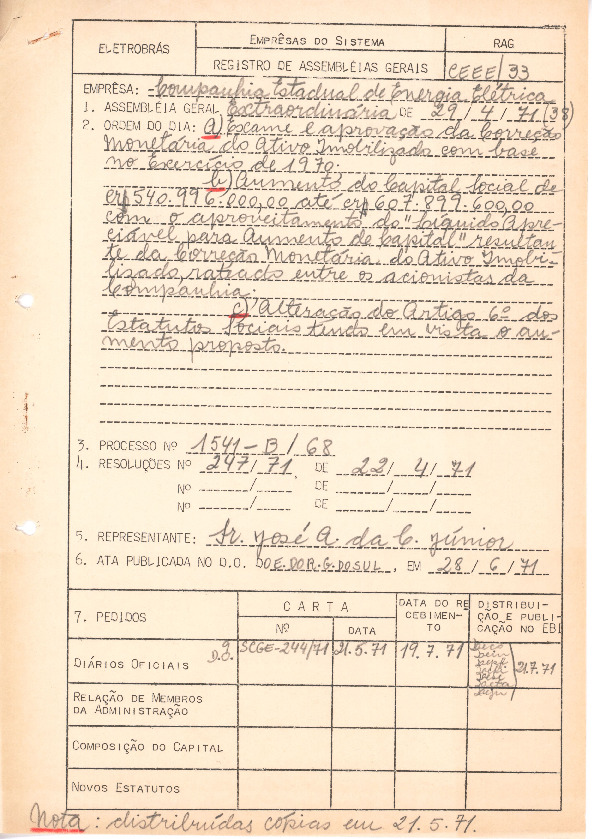 ELETROBRÁS
EMPRÊSAS DO SISTEMA
RAG
REGISTRO DE ASSEMBLÉIAS GERAIS
CEEE/33
EMPRÊSA: Companhia Estadual de Energia Elétrica
1. ASSEMBLÉIA GERAL Extraordinária DE 29/4/71 (38)
2. ORDEM DO DIA: a) Exame e aprovação da Correção
Monetária do Ativo Imobilizado com base
no Exercício de 1970.
b) Aumento do Capital Social de
Cr$ 540.996.000,00 até Cr$ 607.899.600,00
com o aproveitamento do "Líquido Apre-
ciável para Aumento de Capital" resultan
te da Correção Monetária do Ativo Imobi-
lizado, rateado entre os acionistas da
Companhia.
c) Alteração do Artigo 6º dos
Estatutos Sociais tendo em vista o au-
mento proposto.
3. PROCESSO Nº 1541-B/68
4. RESOLUÇÕES Nº 247/71, DE 22/4/71
Nº / DE / /
Nº / DE / /
5. REPRESENTANTE: Sr. José A. da C. Júnior
6. ATA PUBLICADA NO D.O. DO E. DO R.G. DO SUL, EM 28/6/71
7. PEDIDOS
CARTA
Nº
DATA
DATA DO RE
CEBIMEN-
TO
DISTRIBUI-
ÇÃO E PUBLI-
CAÇÃO NO EBI
DIÁRIOS OFICIAIS 9 D.O. SCGE-244/71 21.5.71 19.7.71 21.7.71
RELAÇÃO DE MEMBROS
DA ADMINISTRAÇÃO
COMPOSIÇÃO DO CAPITAL
NOVOS ESTATUTOS
Nota: distribuídas cópias em 21.5.71.